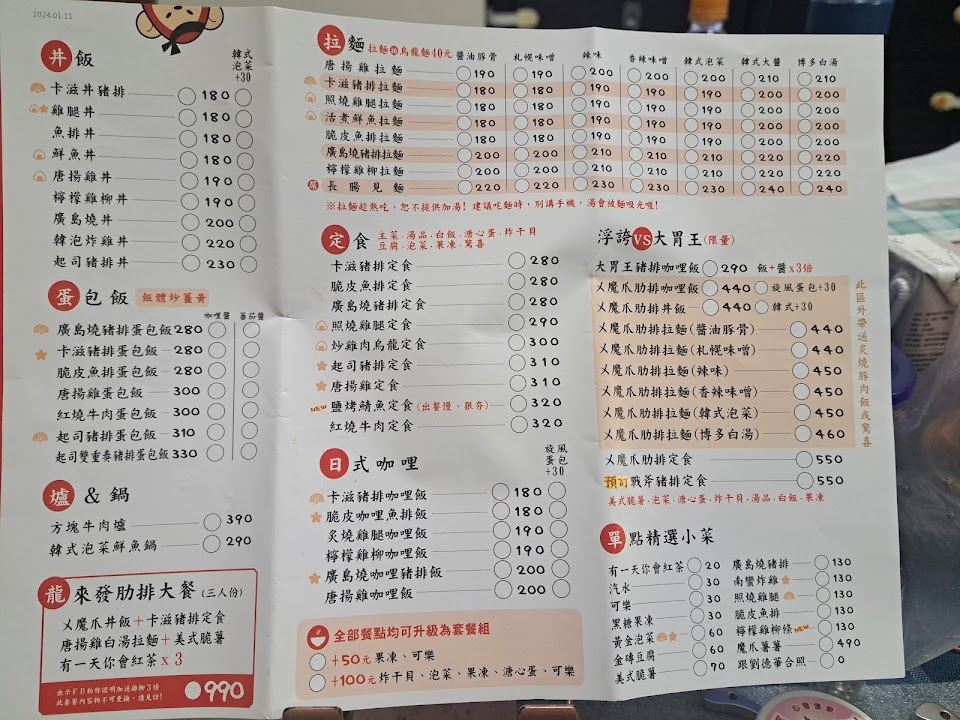 2024.01.11
丼飯
韓式
泡菜
+30
卡滋丼豬排 180
雞腿丼 180
魚排丼 180
鮮魚丼 180
唐揚雞丼 190
檸檬雞柳丼 190
廣島燒丼 200
韓泡炸雞丼 220
起司豬排丼 230
蛋包飯 飯體炒薑黃
咖哩醬 蕃茄醬
廣島燒豬排蛋包飯 280
卡滋豬排蛋包飯 280
脆皮魚排蛋包飯 280
唐揚雞蛋包飯 300
紅燒牛肉蛋包飯 300
起司豬排蛋包飯 310
起司雙重奏豬排蛋包飯 330
爐&鍋
方塊牛肉爐 390
韓式泡菜鮮魚鍋 290
龍來發肋排大餐(三人份)
乂魔爪丼飯+卡滋豬排定食
唐揚雞白湯拉麵+美式脆薯
有一天你會紅茶 x 3
出示FB粉絲證明加送雞柳3條
此套餐內容物不可更換,請見諒!
990
拉麵 拉麵換烏龍麵40元 醬油豚骨 札幌味噌 辣味 香辣味噌 韓式泡菜 韓式大醬 博多白湯
唐揚雞拉麵 190 190 200 200 200 210 210
卡滋豬排拉麵 180 180 190 190 190 200 200
照燒雞腿拉麵 180 180 190 190 190 200 200
活煮鮮魚拉麵 180 180 190 190 190 200 200
脆皮魚排拉麵 180 180 190 190 190 200 200
廣島燒豬排拉麵 200 200 210 210 210 220 220
檸檬雞柳拉麵 200 200 210 210 210 220 220
長腸見麵 220 220 230 230 230 240 240
※拉麵趁熱吃,恕不提供加湯!建議吃麵時,別講手機,湯會被麵吸光喔!
定食 主菜.湯品.白飯.溏心蛋.炸干貝
豆腐.泡菜.果凍.驚喜
卡滋豬排定食 280
脆皮魚排定食 280
廣島燒豬排定食 280
照燒雞腿定食 290
炒雞肉烏龍定食 300
起司豬排定食 310
唐揚雞定食 310
NEW 鹽烤鯖魚定食(出餐慢、狠夯) 320
紅燒牛肉定食 320
日式咖哩
旋風
蛋包
+30
卡滋豬排咖哩飯 180
脆皮咖哩魚排飯 180
炙燒雞腿咖哩飯 190
檸檬雞柳咖哩飯 190
廣島燒咖哩豬排飯 200
唐揚雞咖哩飯 200
全部餐點均可升級為套餐組
+50元 果凍、可樂
+100元 炸干貝、泡菜、果凍、溏心蛋、可樂
浮誇VS大胃王(限量)
大胃王豬排咖哩飯 290 飯+醬x3倍
乂魔爪肋排咖哩飯 440 旋風蛋包+30
乂魔爪肋排丼飯 440 韓式+30
乂魔爪肋排拉麵(醬油豚骨) 440
乂魔爪肋排拉麵(札幌味噌) 440
乂魔爪肋排拉麵(辣味) 450
乂魔爪肋排拉麵(香辣味噌) 450
乂魔爪肋排拉麵(韓式泡菜) 450
乂魔爪肋排拉麵(博多白湯) 460
此區外帶送炙燒豚肉飯或驚喜
乂魔爪肋排定食 550
預訂 戰斧豬排定食 550
美式脆薯.泡菜.溏心蛋.炸干貝.湯品.白飯.果凍
單點精選小菜
有一天你會紅茶 20
汽水 30
可樂 30
黑糖果凍 30
黃金泡菜 60
金磚豆腐 60
美式脆薯 70
廣島燒豬排 130
南蠻炸雞 130
照燒雞腿 130
脆皮魚排 130
檸檬雞柳條 NEW 130
魔爪薯薯 490
跟劉德華合照 0